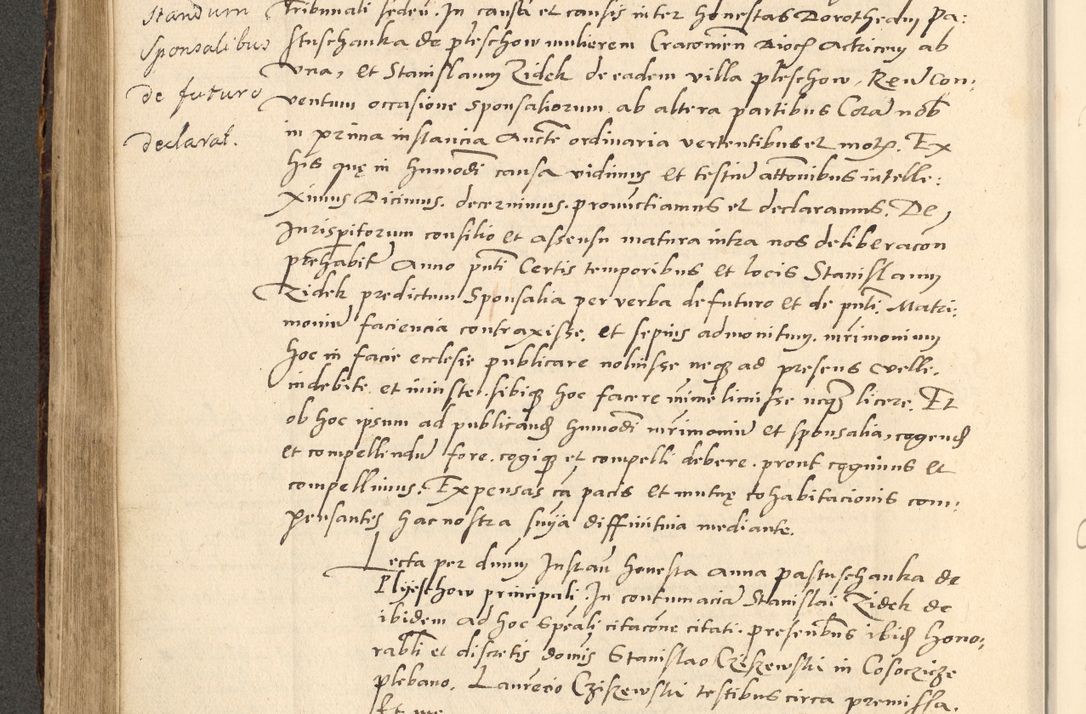 standum
sponsalibus
de futuro
declarat.
Tribunali seden̄. In causa et causis inter honestas Dorotheam Pa:
stuschanka de pleschow mulierem Cracovien̄ Dioc̄ Actricem ab
una, et Stanislaum Zidek de eadem villa pleschow, Reū Con:
ventum occasione sponsaliorum ab altera partibus Corā nob̄
in prima instancia Auctē ordinaria vertentibus et mot̄. Ex
his quę in humōdi causa vidimus et testiū attōnibus intelle:
ximus Dicimus, decernimus, pronūctiamus et declaramus, De
Jurisp̄itorum consilio et assensu matura intra nos deliberacōn
prehabit̄ Anno pn̄ti Certis temporibus et locis Stanislaum
Zidek predictum sponsalia per verba de futuro et de pn̄ti Matri:
moniū faciencia contraxisse, et sepius admonitum, mr̄imonium
hoc in facie ecclesie publicare noluisse neq̄ ad presens velle,
indebite et iniuste, sibiq̄ hoc facere minime licuisse neq̄ licere, Et
ob hoc ipsum ad publicand̄ humōdi mr̄imoniū et sponsalia, cogend̄
et compellendū fore, cogiq̄ et compelli debere, prout cogimus et
compellimus, Expensas cā pacis et mutuę cohabitacionis com:
pensantes hac nostra sn̄ia diffinitiva mediante.
Lecta per dnūm Instan̄ honesta Anna pastuschanka de
Plyeschow principali. In contumaciā Stanislai Zidek de
ibidem ad hoc speāli citacōne citati, presentibus ibid̄ hono:
rabli et discretis dōnis Stanislao Cziszewski in Cosoczicze
plebano, Laurēcio Cziszewski testibus circa premissa,
Et me